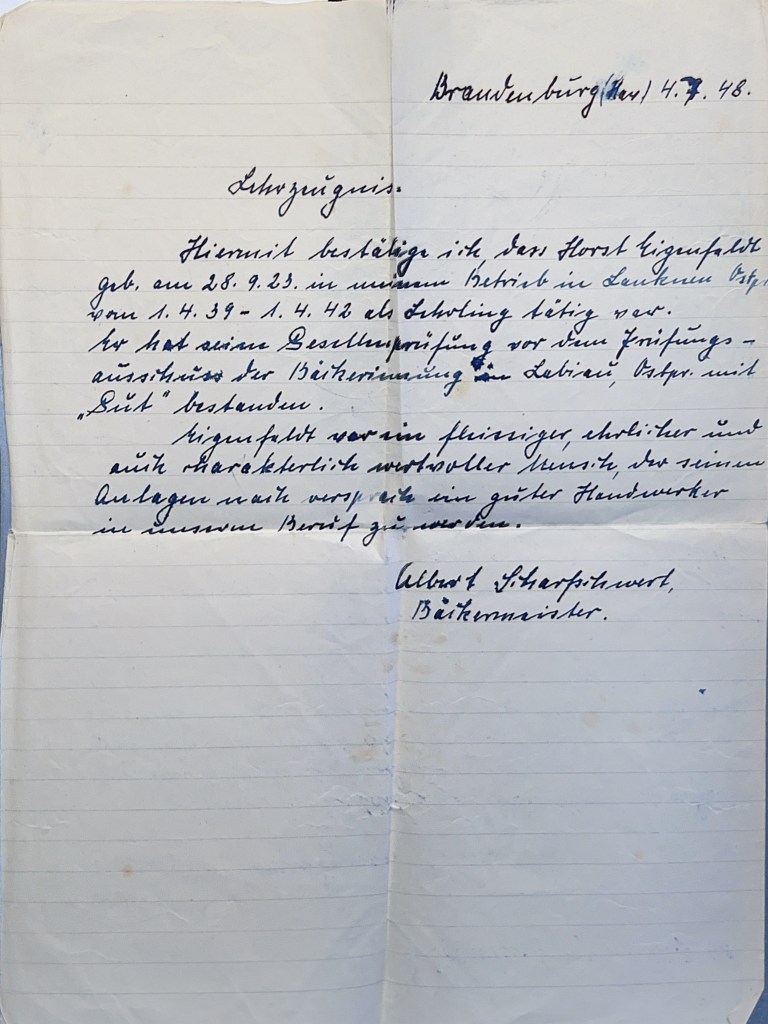 Brandenburg (Hav) 4.7.48.
Lehrzeugnis.
Hiermit bestätige ich, dass Horst Eigenfeldt
geb. am 28.9.23. in meinem Betrieb in Lauknen Ostpr.
vom 1.4.39 - 1.4.42 als Lehrling tätig war.
Er hat seine Gesellenprüfung vor dem Prüfungs-
ausschuss der Bäckerinnung in Labiau, Ostpr. mit
„Gut" bestanden.
Eigenfeldt war ein fleissiger, ehrlicher und
auch charakterlich wertvoller Mensch, der seinen
Anlagen nach versprach ein guter Handwerker
in unserem Beruf zu werden.
Albert Scharfschwert,
Bäckermeister.